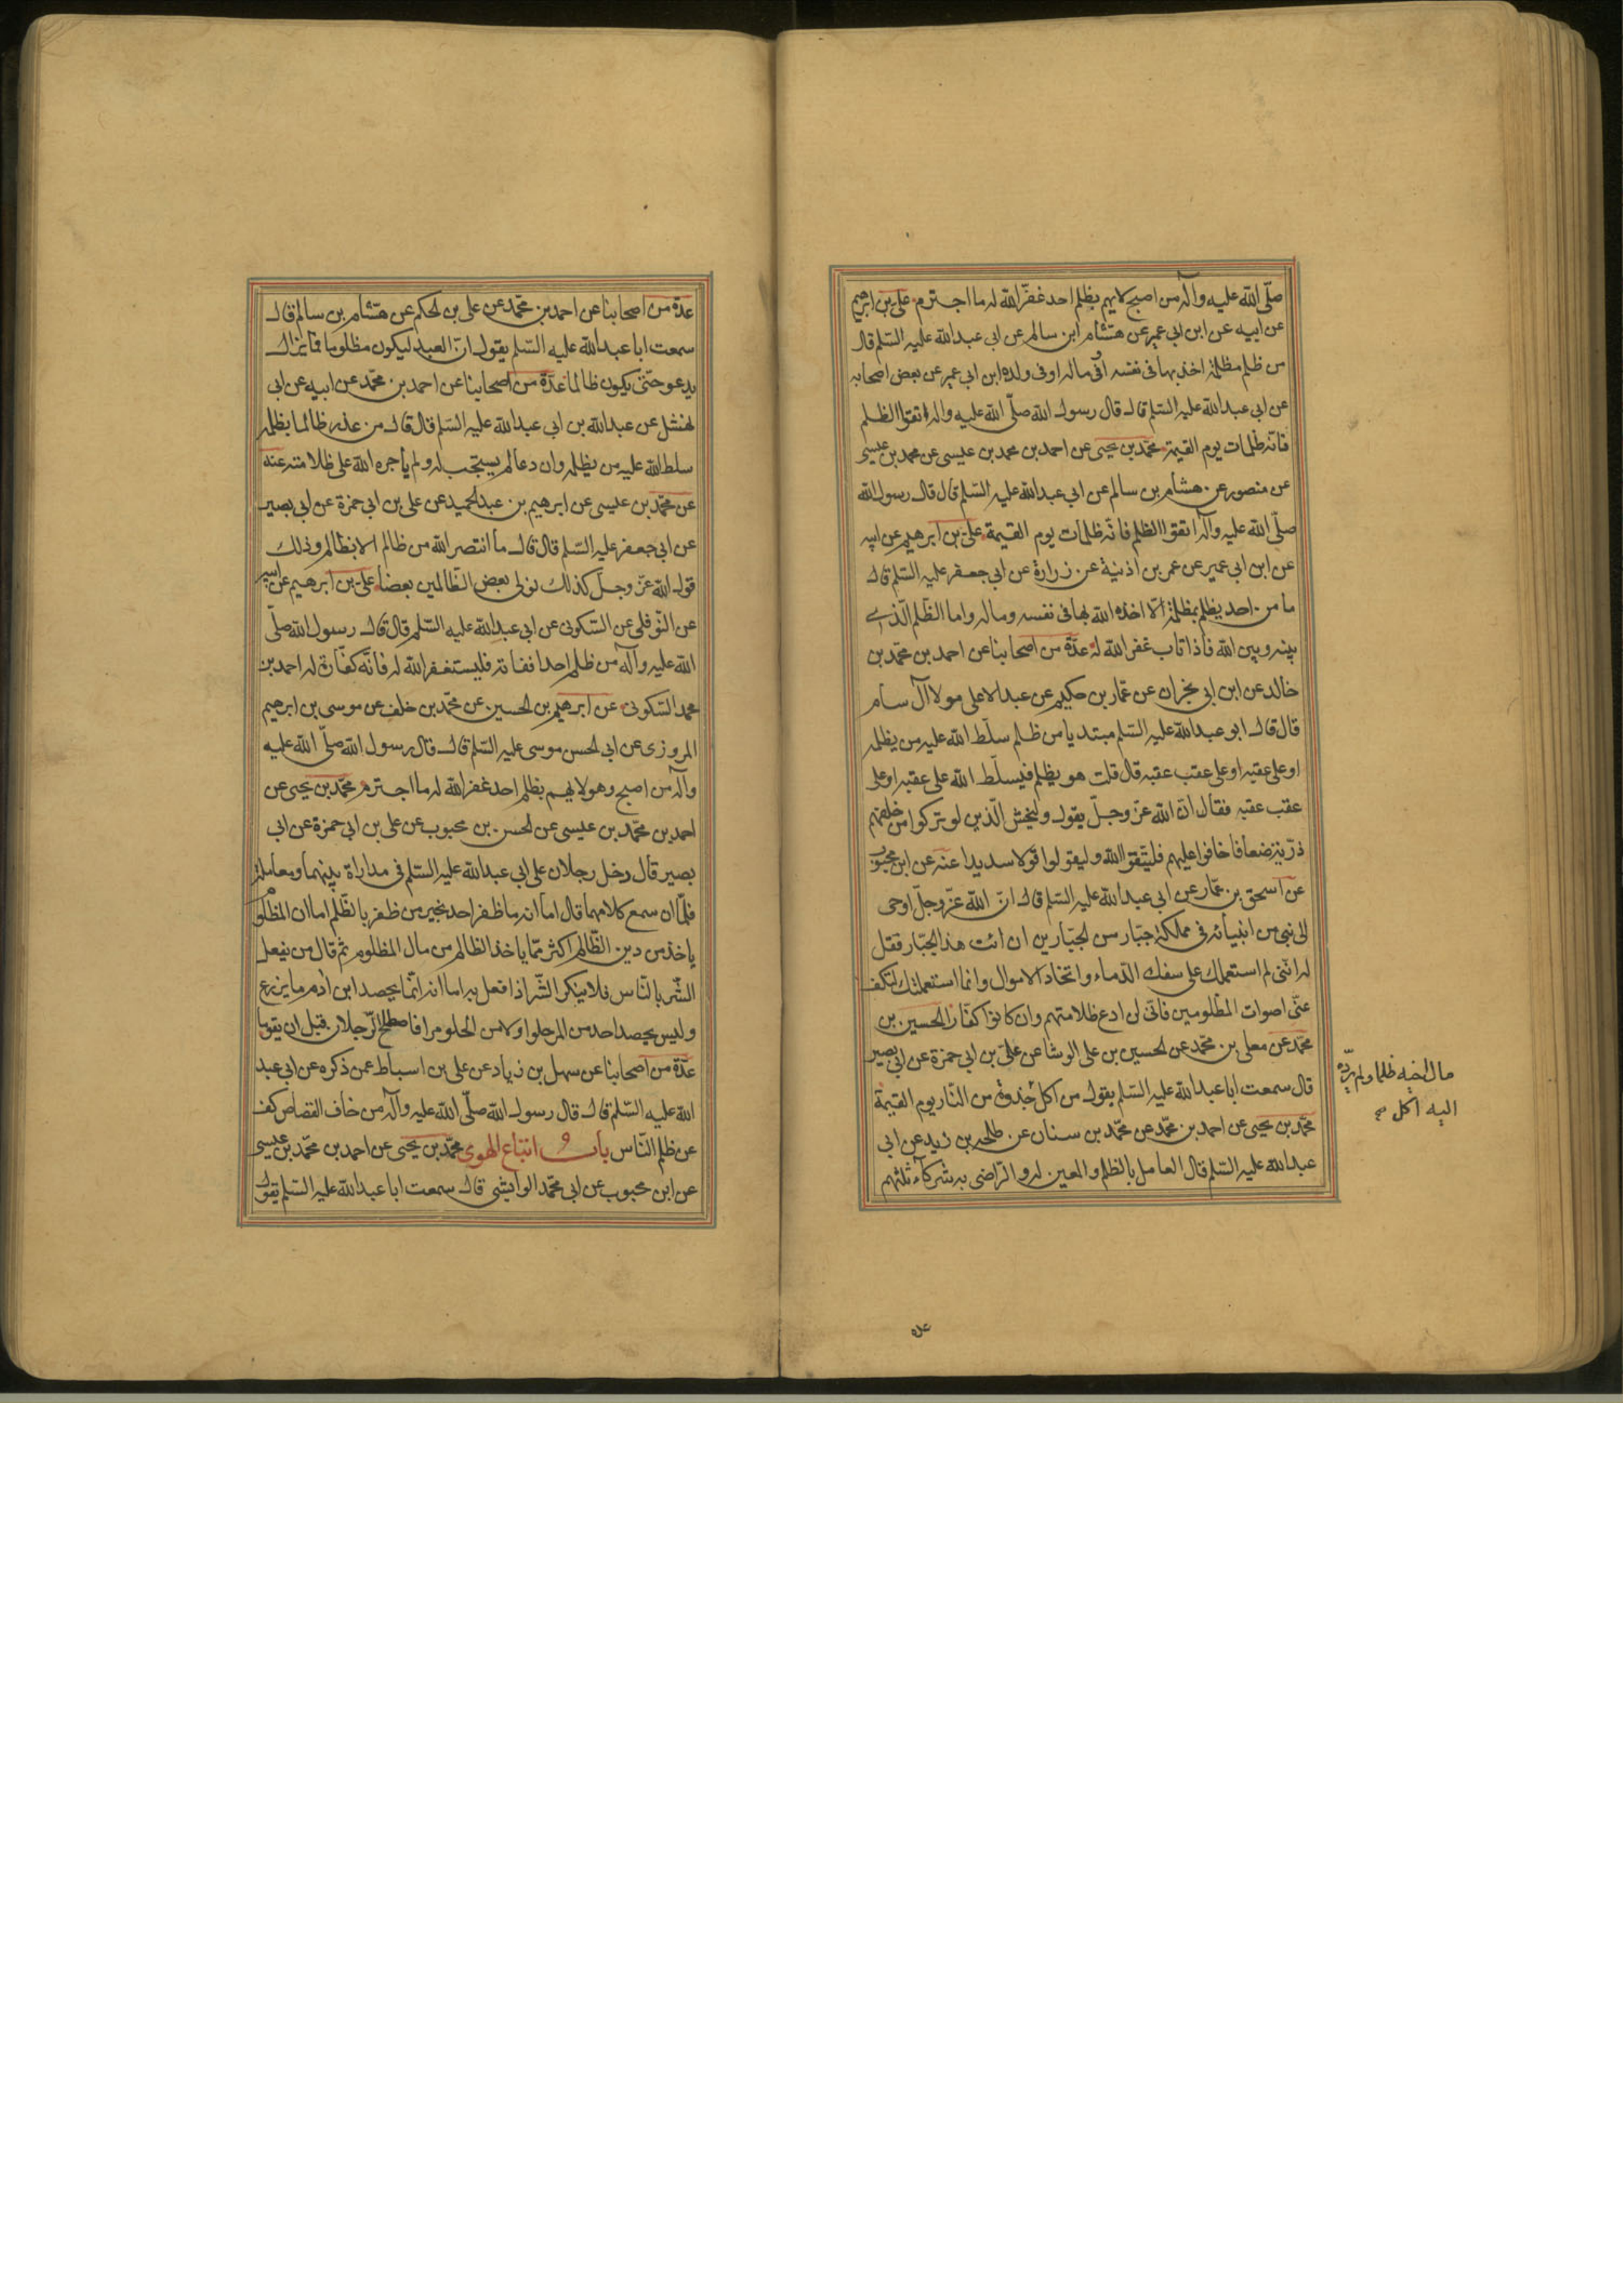 صلّى الله عليه وآله من اصبح لايهم بظلم احد غفر الله له ما اجترم علي بن ابرهيم
عن ابيه عن ابن ابي عمير عن هشام ابن سالم عن ابي عبد الله عليه السّلم قال
من ظلم مظلمة اخذ بها في نفسه او في ماله او في ولده ابن ابي عمير عن بعض اصحابه
عن ابي عبد الله عليه السّلم قال قال رسول الله صلّى الله عليه واله اتقوا الظلم
فانّه ظلمات يوم القيمة محمّد بن يحيى عن احمد بن محمد بن عيسى عن محمد بن عيسى
عن منصور عن هشام بن سالم عن ابي عبد الله عليه السّلم قال قال رسول الله
صلّى الله عليه وآله اتقوا الظلم فانّه ظلمات يوم القيمة علىّ بن ابرهيم عن ابيه
عن ابن ابي عمير عن عمر بن اذنية عن زرارة عن ابي جعفر عليه السّلم قال
ما من احد يظلم بمظلمة الّا اخذه الله بها في نفسه وماله واما الظّلم الّذي
بينه وبين الله فاذا تاب غفر الله له عدّة من اصحابنا عن احمد بن محمّد بن
خالد عن ابن ابي نجران عن عمّار بن حكيم عن عبد الاعلى مولا آل سام
قال قال ابو عبد الله عليه السّلم مبتديا من ظلم سلّط الله عليه من يظلمه
او على عقبه او على عقب عقبه قال قلت هو يظلم فيسلّط الله على عقبه او على
عقب عقبه فقال انّ الله عزّ وجلّ يقول وليخش الّذين لو تركوا من خلفهم
ذرّية ضعافا خافوا عليهم فليتّقوا الله وليقولوا قولا سديدا عنه عن ابن محبوب
عن اسحق بن عمّار عن ابي عبد الله عليه السّلم قال انّ الله عزّ وجلّ اوحى
الى نبى من انبيائه في مملكة جبّار من الجبّارين ان ائت هذا الجبّار فقل
له انّني لم استعملك على سفك الدّماء واتخاذ الاموال وانما استعملتك لتكف
عنّى اصوات المظلومين فانّى لن ادع ظلامتهم وان كانوا كفّارا الحسين بن
محمّد عن معلى بن محمّد عن الحسين بن على الوشا عن علىّ بن ابي حمزة عن ابي بصير
قال سمعت ابا عبد الله عليه السّلم يقول من اكل جذوة من النّار يوم القيمة
محمّد بن يحيى عن احمد بن محمّد عن محمّد بن سنان عن طلحه بن زيد عن ابي
عبد الله عليه السّلم قال العامل بالظلم والمعين له والرّاضى به شركآء ثلثهم
مال اخيه ظلما ولم يردّه
اليه اكل
عدّة من اصحابنا عن احمد بن محمّد عن على بن الحكم عن هشام بن سالم قال
سمعت ابا عبد الله عليه السّلم يقول انّ العبد ليكون مظلوما فما يزال
يدعو حتّى يكون ظالما عدّة من اصحابنا عن احمد بن محمّد عن ابيه عن ابي
نهشل عن عبد الله بن ابي عبد الله عليه السّلم قال قال من عذر ظالما بظلمه
سلط الله عليه من يظلمه وان دعا لم يستجب له ولم يأجره الله على ظلامته عنه
عن محمّد بن عيسى عن ابرهيم بن عبد الحميد عن على بن ابي حمزة عن ابي بصير
عن ابي جعفر عليه السّلم قال قال ما انتصر الله من ظالم الا بظالم وذلك
قول الله عزّ وجلّ كذلك نولى بعض الظّالمين بعضا علىّ بن ابرهيم عن ابيه
عن النّوفلى عن السّكونى عن ابي عبد الله عليه السّلم قال قال رسول الله صلّى
الله عليه وآله من ظلم احدا ففاته فليستغفر الله له فانّه كفّارة له احمد بن
محمد السّكونى عن ابرهيم بن الحسين عن محمّد بن خلف عن موسى بن ابرهيم
المروزى عن ابي الحسن موسى عليه السّلم قال قال رسول الله صلّى الله عليه
وآله من اصبح وهو لا يهم بظلم احد غفر الله له ما اجترم محمّد بن يحيى عن
احمد بن محمّد بن عيسى عن الحسن بن محبوب عن على بن ابي حمزة عن ابي
بصير قال دخل رجلان على ابي عبد الله عليه السّلم في مداراة بينهما ومعاملة
فلمّا ان سمع كلامهما قال اما انه ما ظفر احد بخير من ظفر بالظّلم اما ان المظلوم
ياخذ من دين الظّالم اكثر ممّا ياخذ الظالم من مال المظلوم ثم قال من يفعل
الشّر بالنّاس فلا ينكر الشّر اذا فعل به اما انه انّما يحصد ابن ادم ما يزرع
وليس يحصد احد من المر حلوا ولا من الحلو مرا فاصطلح الرّجلان قبل ان يقوما
عدّة من اصحابنا عن سهل بن زياد عن على بن اسباط عمن ذكره عن ابي عبد
الله عليه السّلم قال قال رسول الله صلّى الله عليه وآله من خاف القصاص كف
عن ظلم النّاس باب اتباع الهوى محمّد بن يحيى عن احمد بن محمّد بن عيسى
عن ابن محبوب عن ابي محمّد الوابشى قال سمعت ابا عبد الله عليه السّلم يقول
عدة